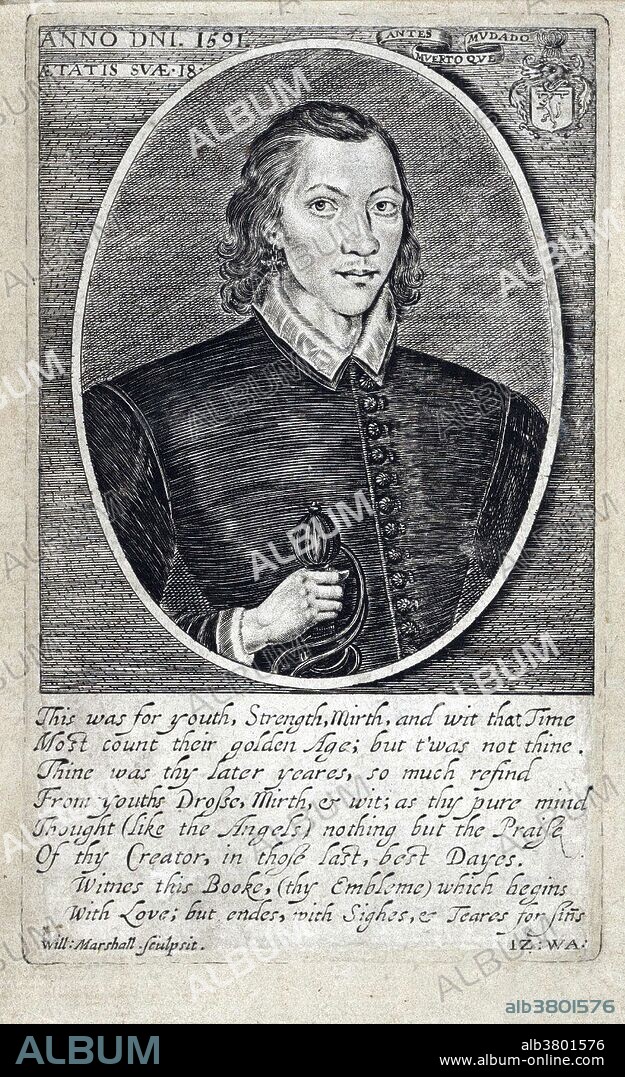 ANNO DNI. 1591.
ÆTATIS SVÆ. 18.
ANTES MVDADO
MVERTO QVE
This was for youth, Strength, Mirth, and wit that Time
Most count their golden Age; but t'was not thine.
Thine was thy later yeares, so much refind
From youths Drosse, Mirth, & wit; as thy pure mind
Thought (like the Angels) nothing but the Praise
Of thy Creator, in those last, best Dayes.
Witnes this Booke, (thy Embleme) which begins
With Love; but endes, with Sighes, & Teares for siñs
Will: Marshall sculpsit.
IZ: WA:
alb3801576
ALBUM
alb3801576
www.album-online.com